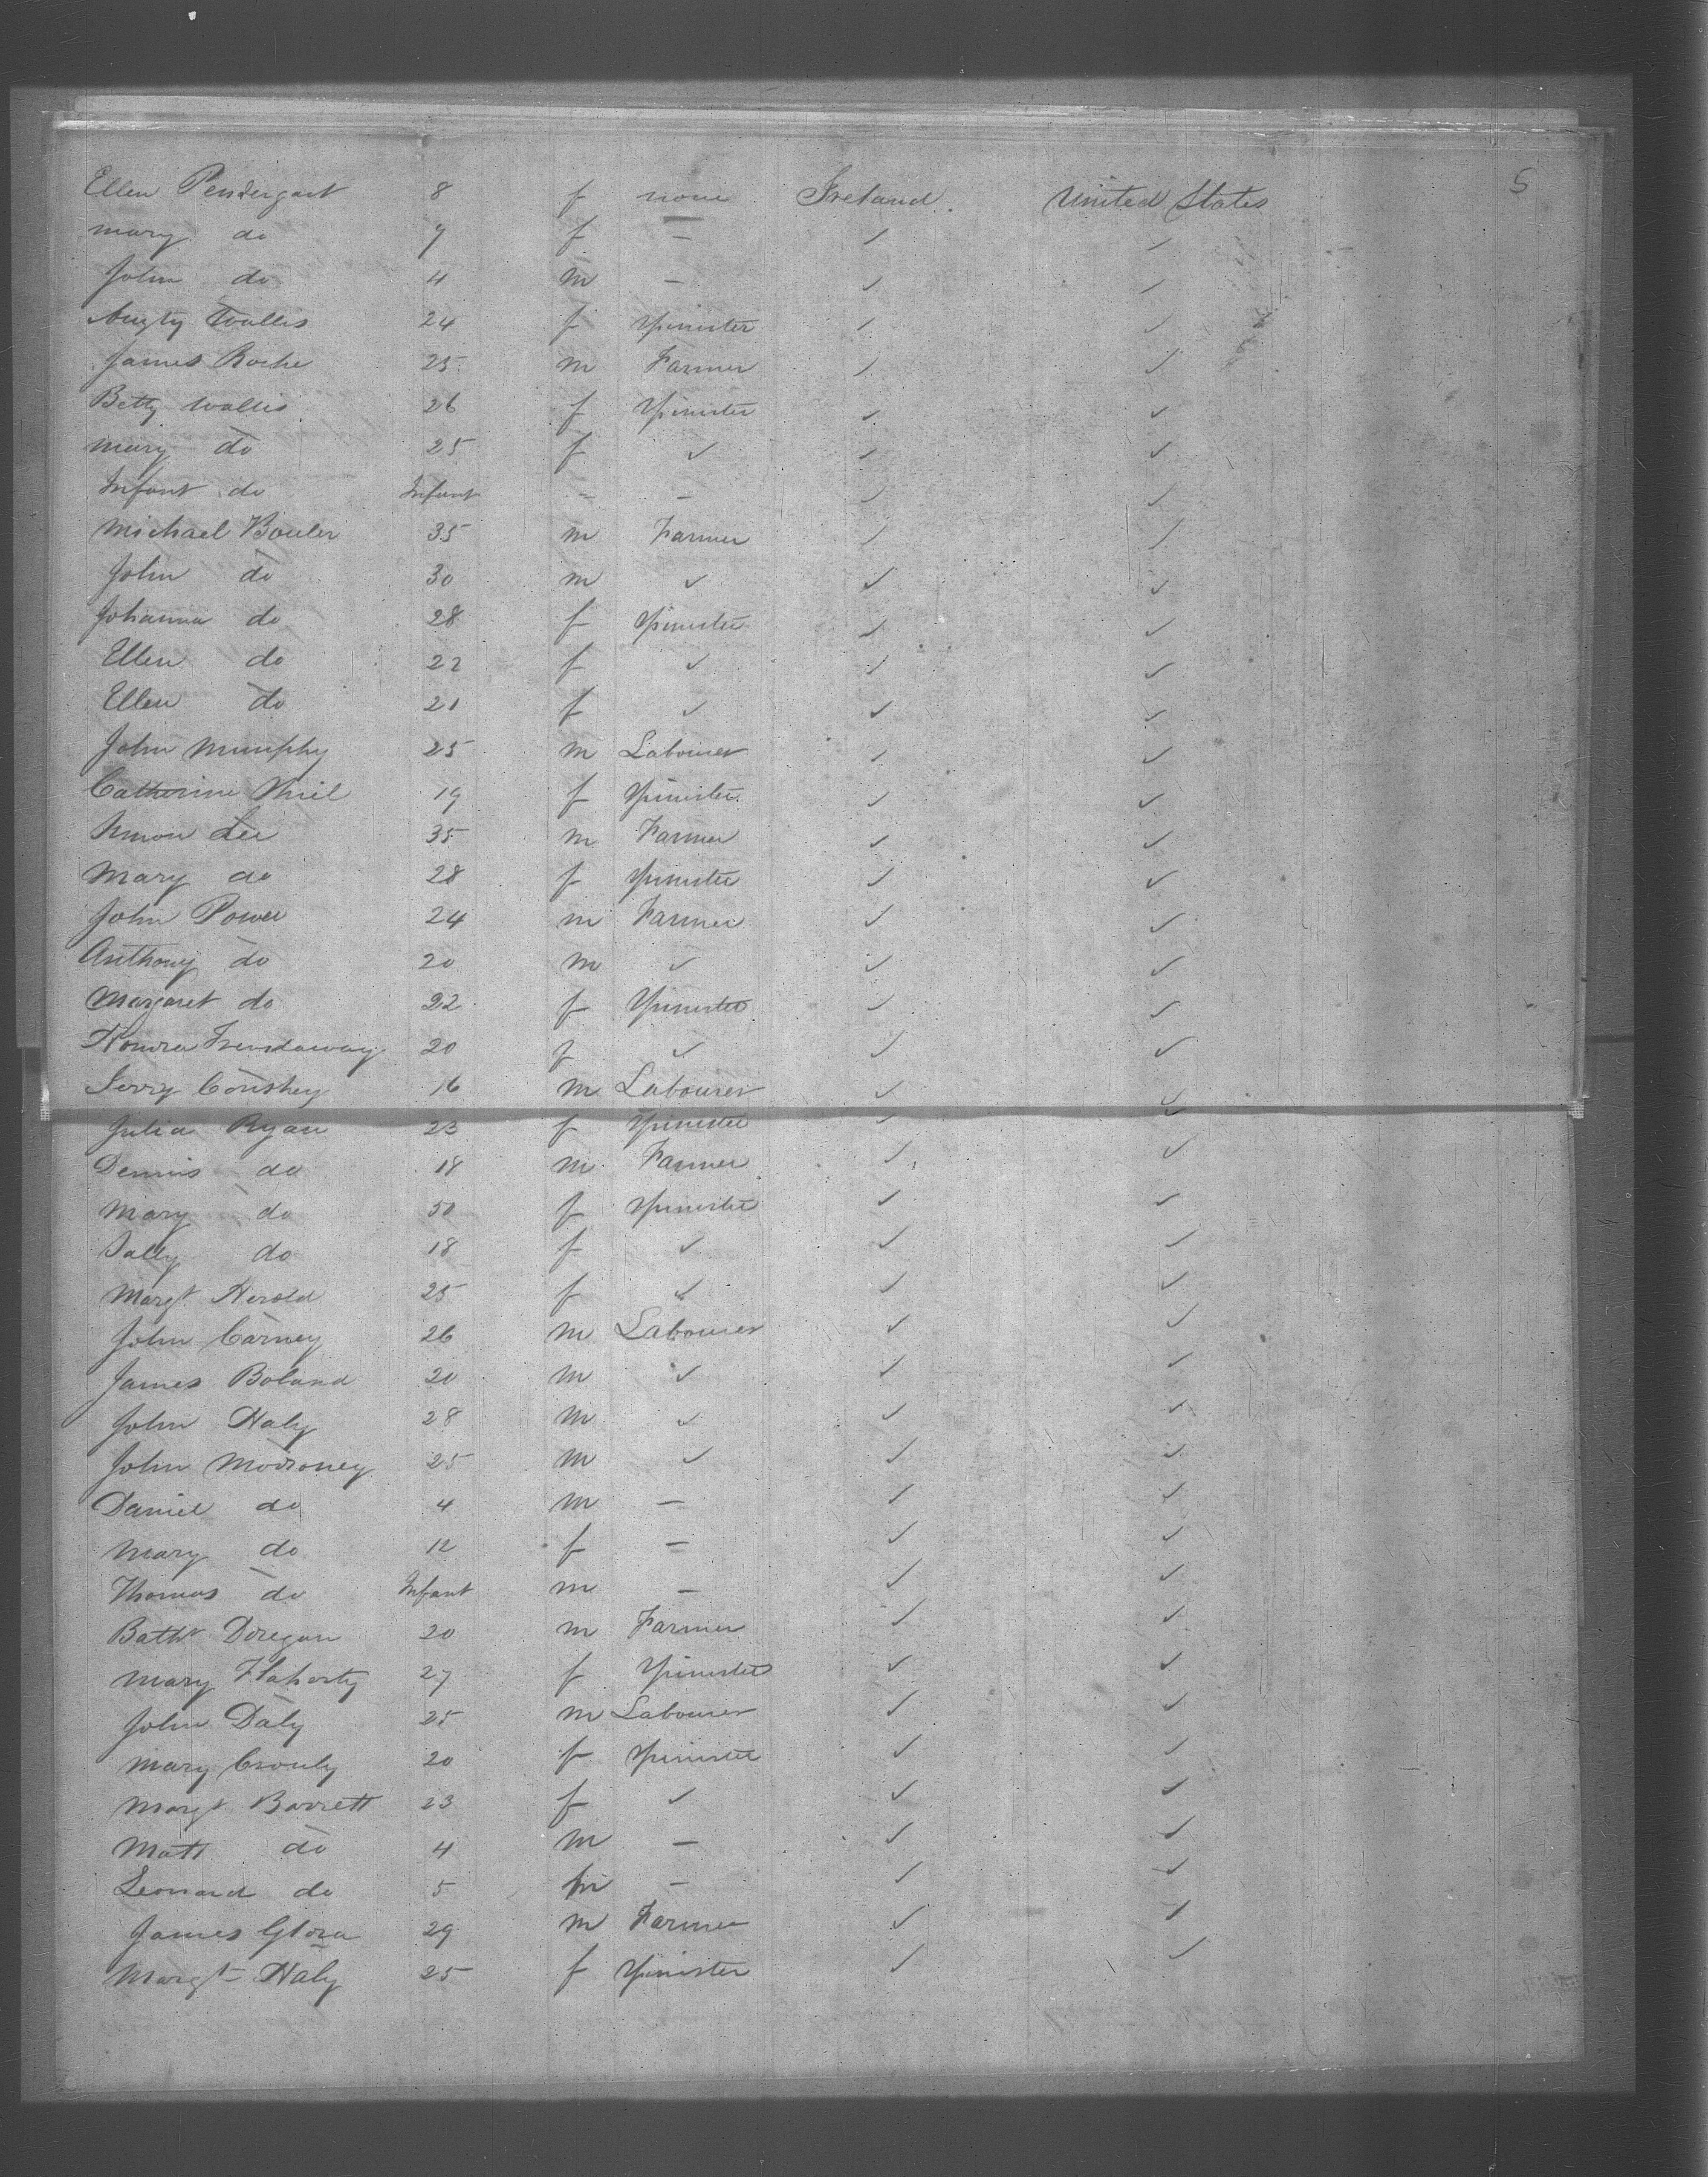 5
Ellen Pendergast 8 f none Ireland. United States
Mary do 7 f — ✓ ✓
John do 4 m — ✓ ✓
Wallis 24 f Spinster ✓ ✓
James Roche 25 m Farmer ✓ ✓
Betty Wallis 26 f Spinster ✓ ✓
Mary do 25 f ✓ ✓ ✓
Infant do Infant — — ✓ ✓
Michael Bouler 35 m Farmer ✓ ✓
John do 30 m ✓ ✓ ✓
Johanna do 28 f Spinster ✓ ✓
Ellen do 22 f ✓ ✓ ✓
Ellen do 21 f ✓ ✓ ✓
John Murphy 25 m Labourer ✓ ✓
Catherine 19 f Spinster ✓ ✓
Simon Lee 35 m Farmer ✓ ✓
Mary do 28 f Spinster ✓ ✓
John Power 24 m Farmer ✓ ✓
Anthony do 20 m ✓ ✓ ✓
Margaret do 22 f Spinster ✓ ✓
Honora 20 f ✓ ✓ ✓
Jerry 16 m Labourer ✓ ✓
Julia Ryan 23 f Spinster ✓ ✓
Dennis do 18 m Farmer ✓ ✓
Mary do 50 f Spinster ✓ ✓
Sally do 18 f ✓ ✓ ✓
Margt Herold 25 f ✓ ✓ ✓
John Carney 26 m Labourer ✓ ✓
James Boland 20 m ✓ ✓ ✓
John Haly 28 m ✓ ✓ ✓
John Modroney 25 m ✓ ✓ ✓
Daniel do 4 m — ✓ ✓
Mary do 12 f — ✓ ✓
Thomas do Infant m — ✓ ✓
Batht Doregan 20 m Farmer ✓ ✓
Mary Flaherty 27 f Spinster ✓ ✓
John Daly 25 m Labourer ✓ ✓
Mary Crouly 20 f Spinster ✓ ✓
Margt Barrett 23 f ✓ ✓ ✓
Matt do 4 m — ✓ ✓
Leonard do 5 m — ✓ ✓
James Glora 29 m Farmer ✓ ✓
Margt Haly 25 f Spinster ✓ ✓